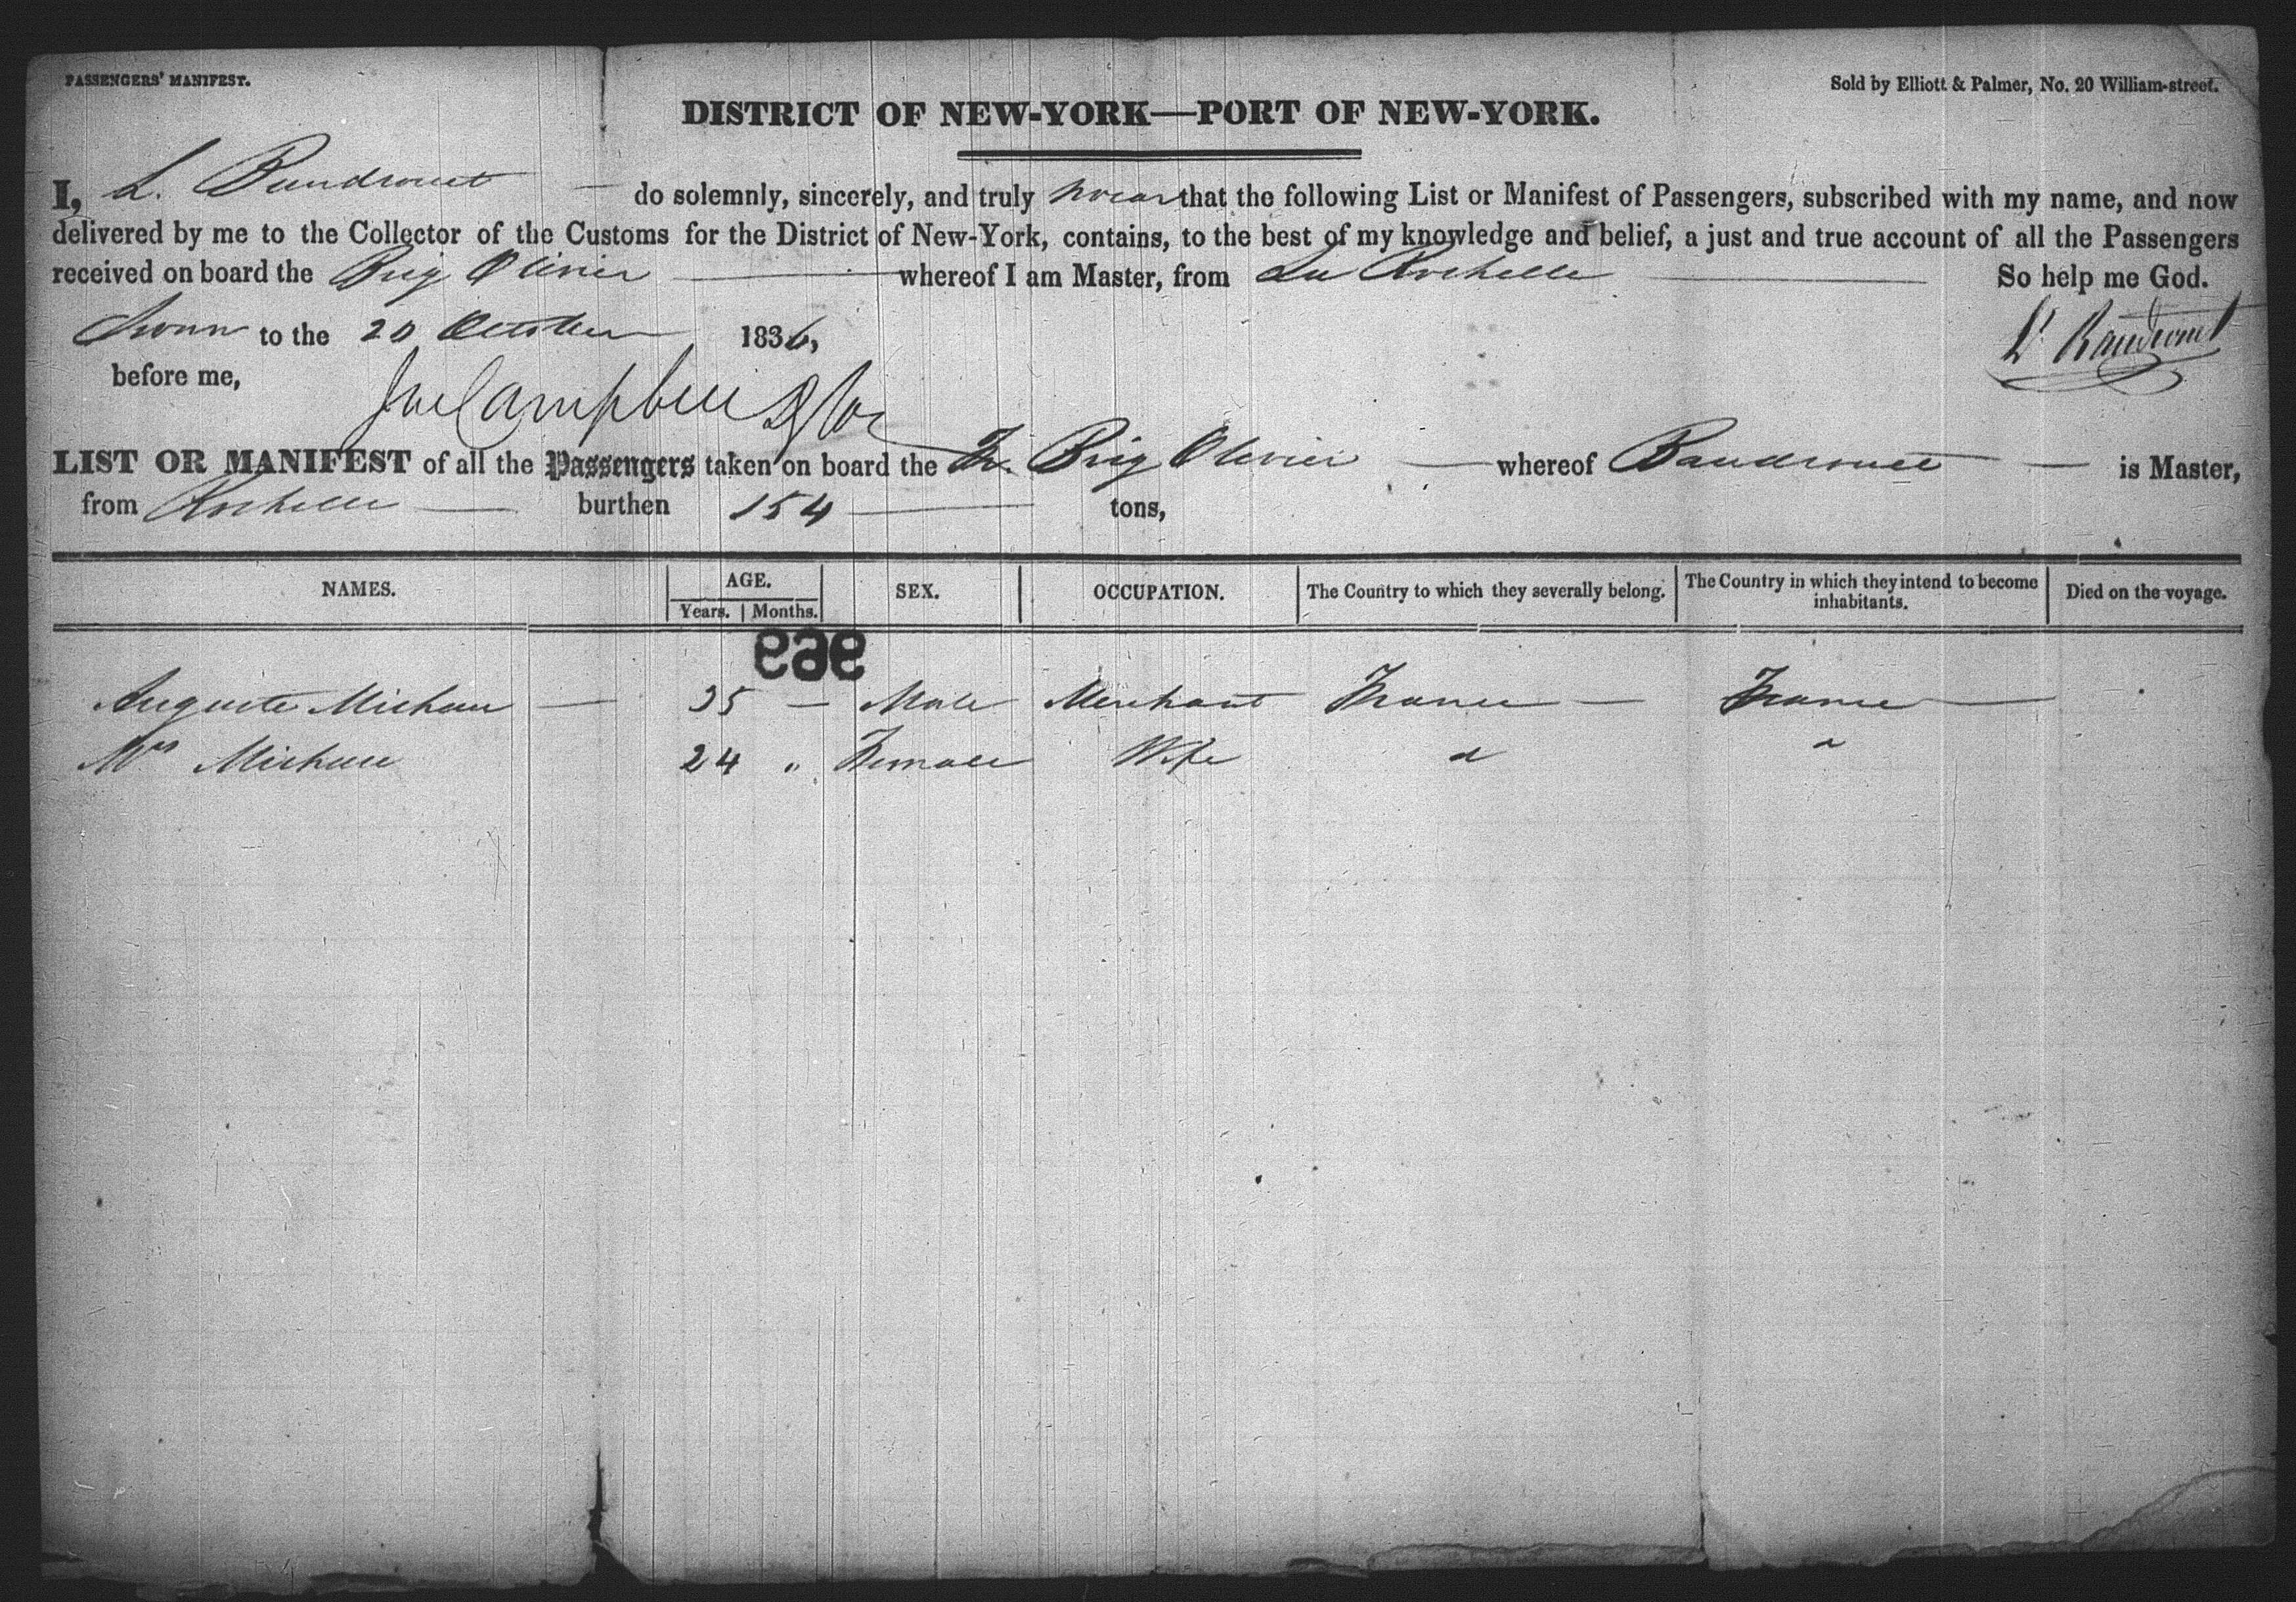 PASSENGERS' MANIFEST.
Sold by Elliott & Palmer, No. 20 William-street.
DISTRICT OF NEW-YORK—PORT OF NEW-YORK.
I, L. Baudrouet — do solemnly, sincerely, and truly swear that the following List or Manifest of Passengers, subscribed with my name, and now
delivered by me to the Collector of the Customs for the District of New-York, contains, to the best of my knowledge and belief, a just and true account of all the Passengers
received on board the Brig Olivier — whereof I am Master, from La Rochelle — So help me God.
Sworn to the 20 October 1836,
before me,
Campbell
LIST OR MANIFEST of all the Passengers taken on board the Fr. Brig Olivier — whereof Baudrouet — is Master,
from Rochelle — burthen 154 — tons,
NAMES. AGE. SEX. OCCUPATION. The Country to which they severally belong. The Country in which they intend to become inhabitants. Died on the voyage.
Years. Months.
969
Auguste Micheau — 35 — Male Merchant France — France —
Mrs Micheau 24 " Female Wife d d